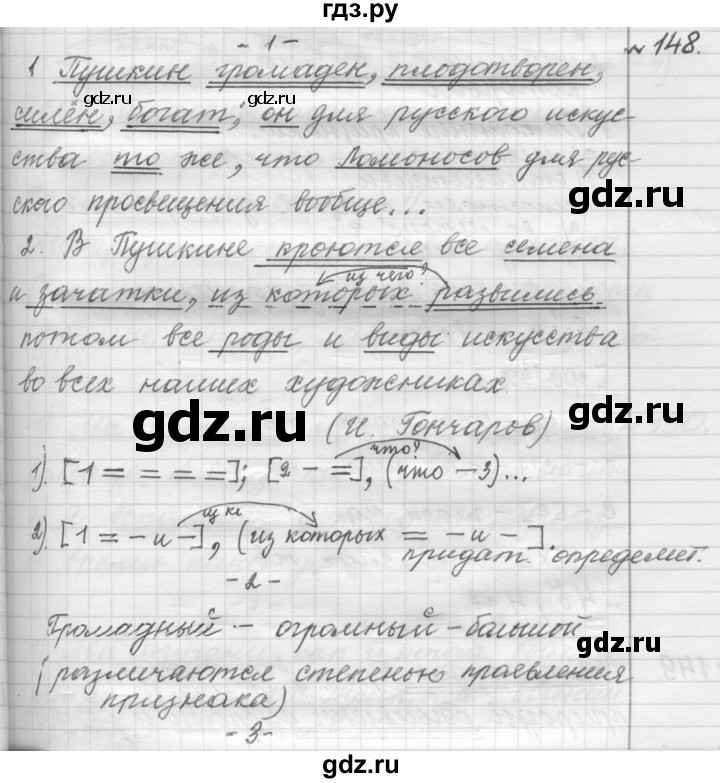 гдз.ру
- 1 -
№ 148.
1 Пушкин громаден, плодотворен,
силён, богат; он для русского искус-
ства то же, что Ломоносов для рус-
ского просвещения вообще...
2. В Пушкине кроются все семена
из чего?
и зачатки, из которых развились
потом все роды и виды искусства
во всех наших художниках
(И. Гончаров)
что?
1). [1 = = = =]; [2 - =], (что - 3)...
2). [1 = - и -], (из которых = - и -].
придат. определит.
- 2 -
Громадный - огромный - большой
(различаются степенью проявления
признака)
- 3 -
gdz.ru gdz.ru
gdz.ru gdz.ru
gdz.ru gdz.ru
gdz.ru gdz.ru
гдз.ру